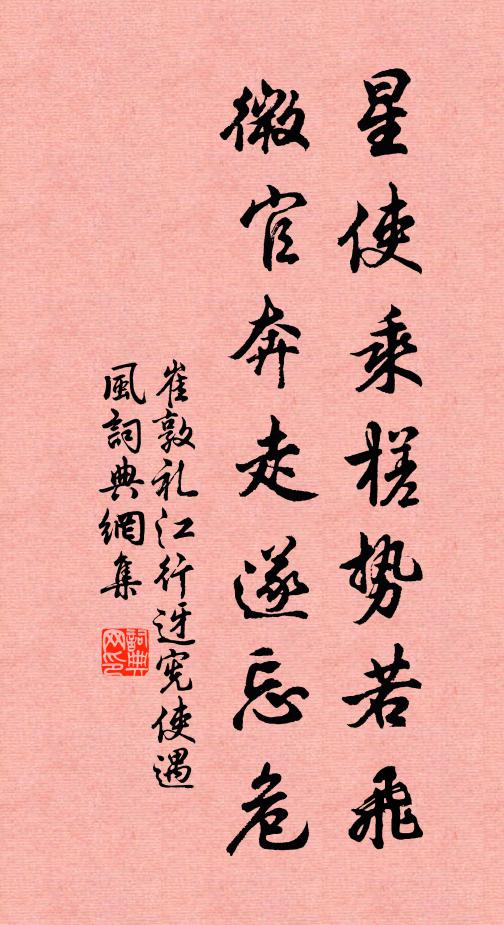 星使乘槎势若飛
微官奔走遂忘危
崔敦礼江行迓宪使遇
風詞典網集
詞典
网印